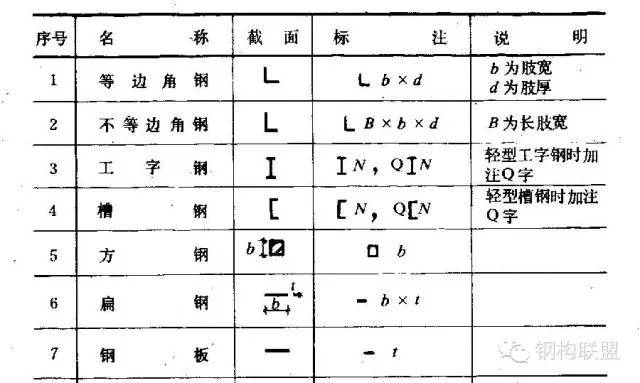 序号 名称 截面 标注 说明
1 等边角钢 L L b × d b 为肢宽
d 为肢厚
2 不等边角钢 L L B × b × d B 为长肢宽
3 工字钢 I I N , Q I N 轻型工字钢时加
注Q字
4 槽钢 [ [ N , Q [ N 轻型槽钢时加注
Q字
5 方钢 b □ b
6 扁钢 t b - b × t
7 钢板 — - t
钢构联盟